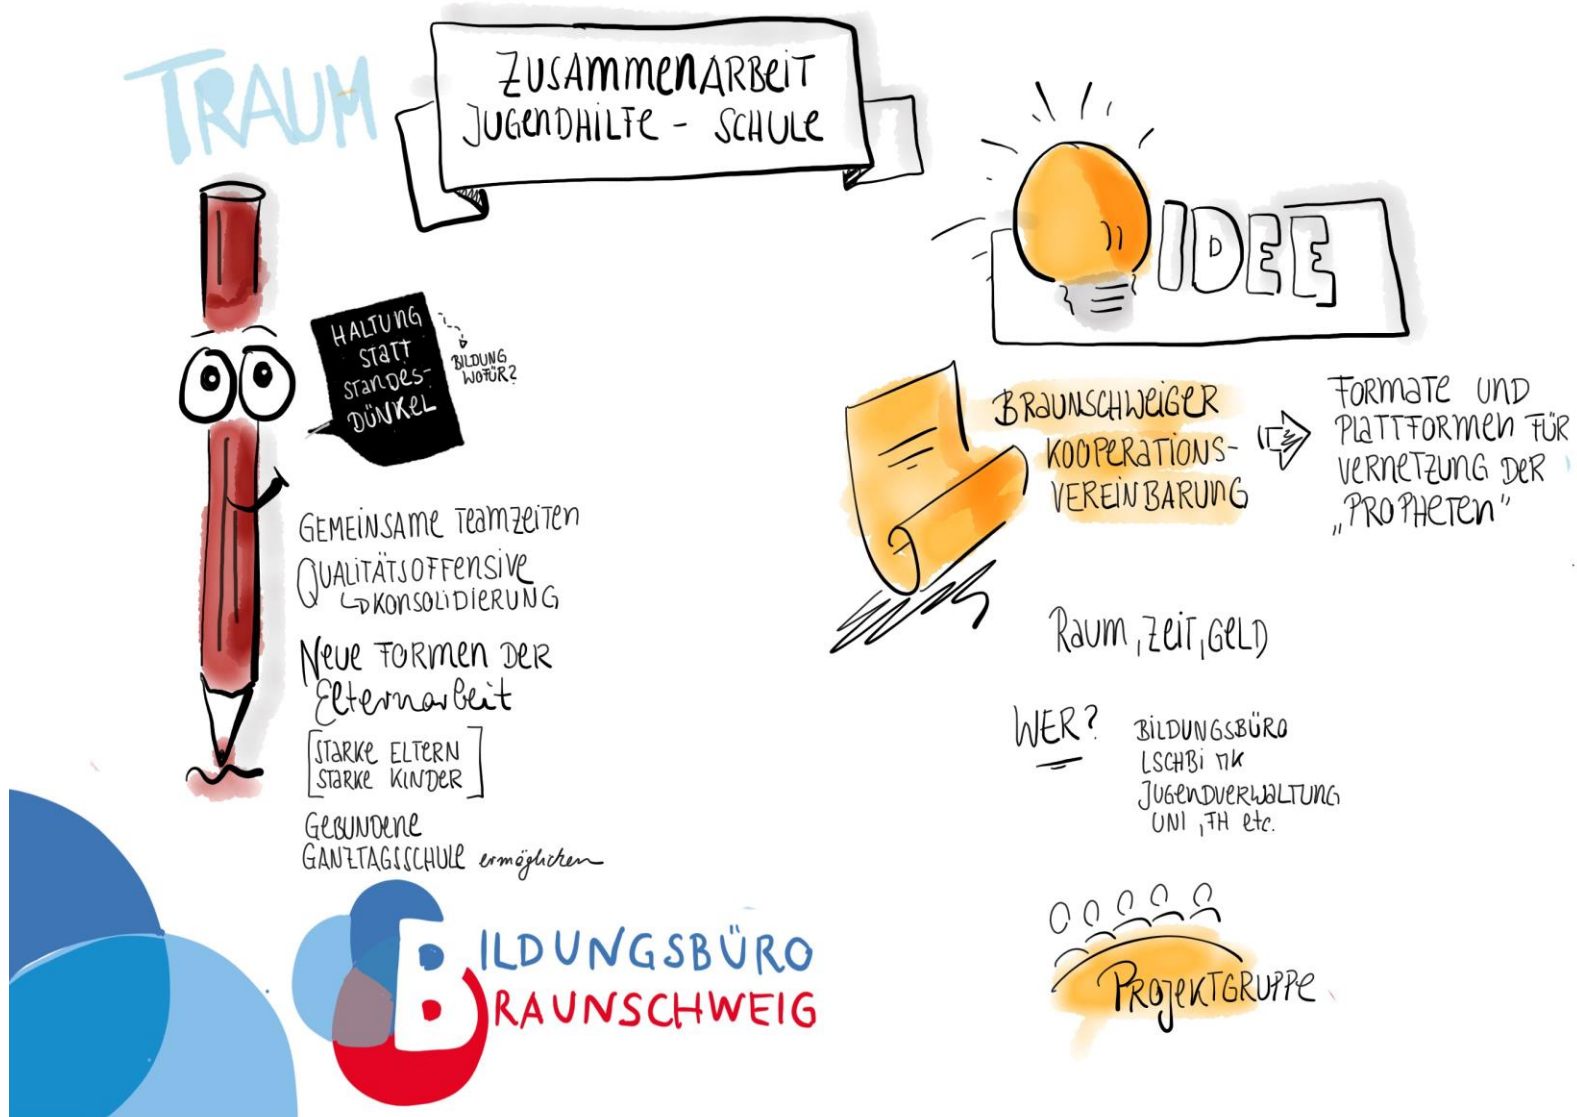 TRAUM
ZUSAMMENARBEIT
JUGENDHILFE - SCHULE
HALTUNG
STATT
STANDES-
DÜNKEL
BILDUNG
WOFÜR?
GEMEINSAME TEAMZEITEN
QUALITÄTSOFFENSIVE
KONSOLIDIERUNG
NEUE FORMEN DER
Elternarbeit
[STARKE ELTERN
STARKE KINDER]
GEBUNDENE
GANZTAGSSCHULE ermöglichen
BILDUNGSBÜRO
BRAUNSCHWEIG
IDEE
BRAUNSCHWEIGER
KOOPERATIONS-
VEREINBARUNG
FORMATE UND
PLATTFORMEN FÜR
VERNETZUNG DER
„PROPHETEN"
RAUM, ZEIT, GELD
WER?
BILDUNGSBÜRO
LSCHBi MK
JUGENDVERWALTUNG
UNI, FH etc.
PROJEKTGRUPPE